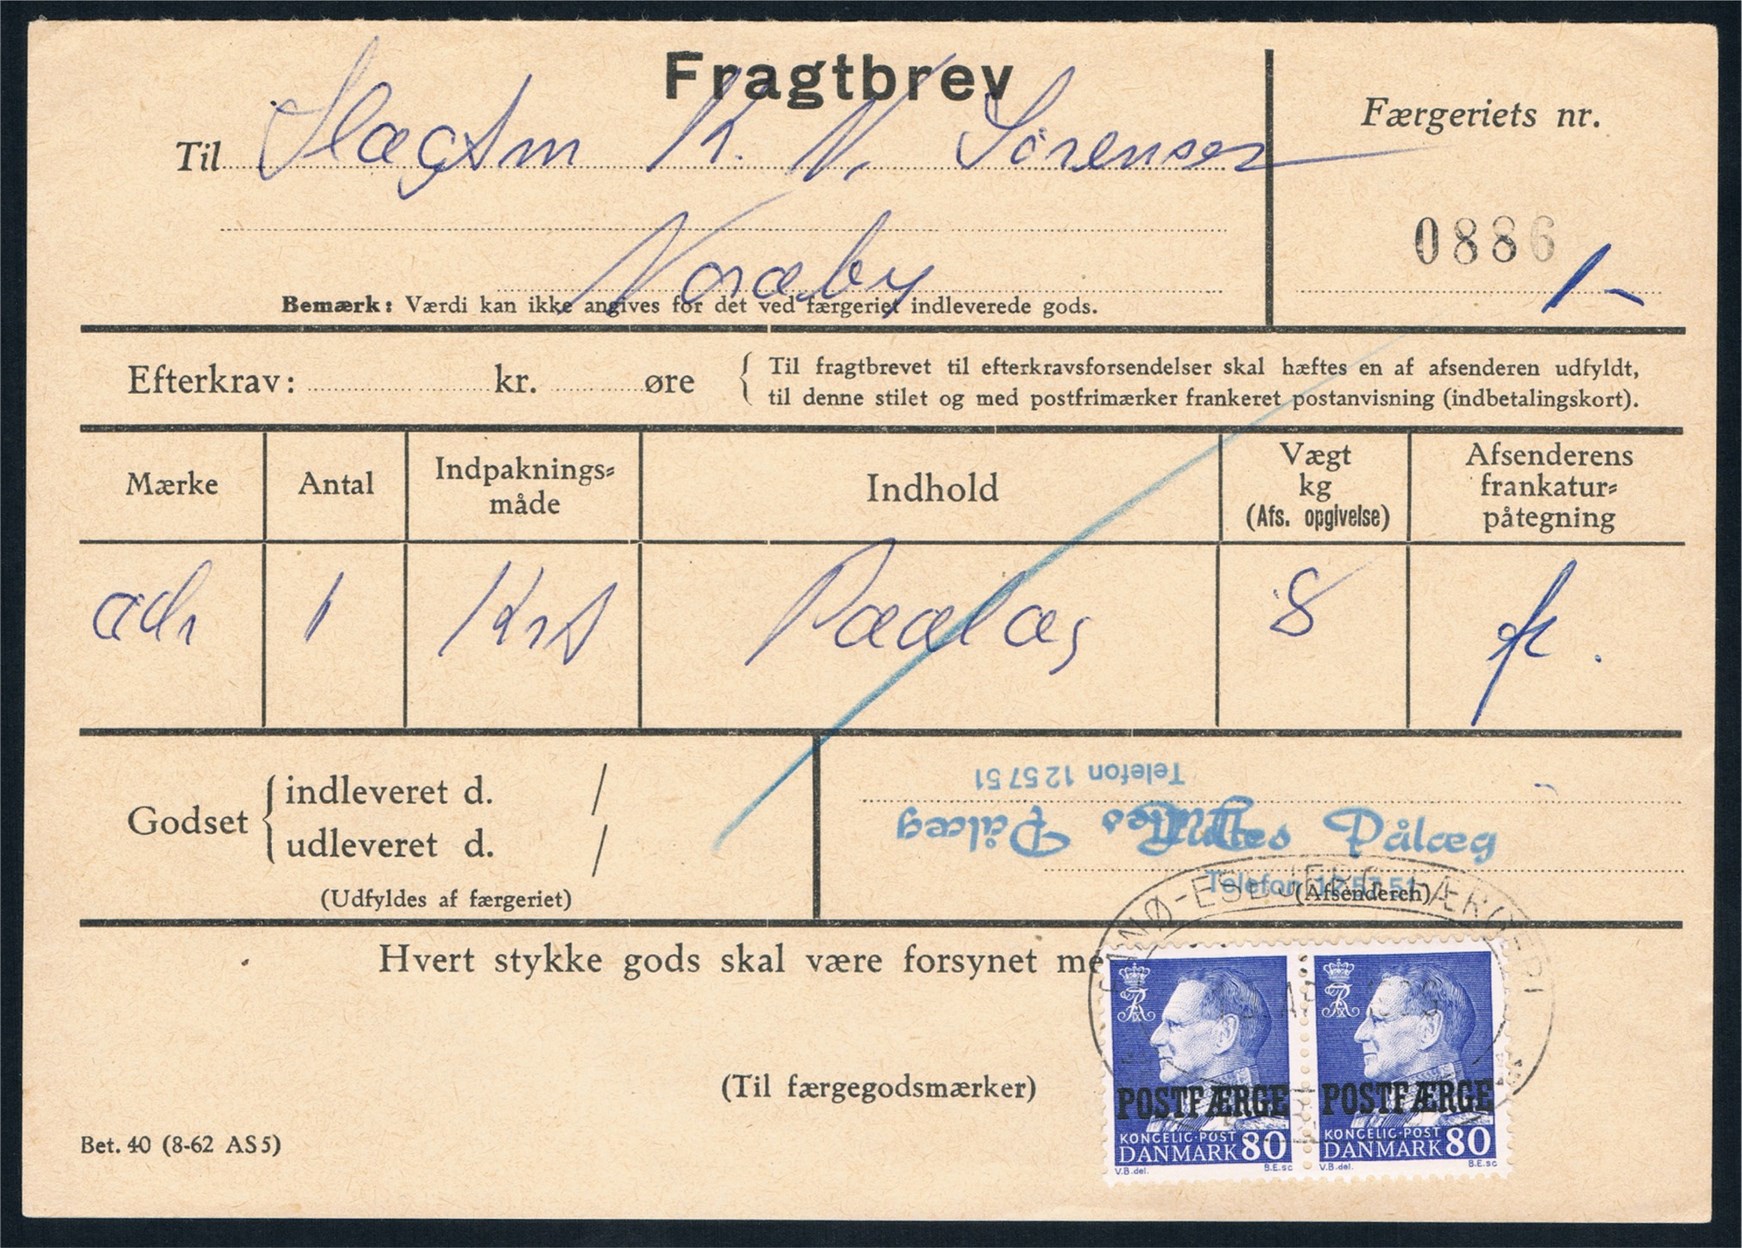 Fragtbrev
Færgeriets nr.
Til Slagtm K. N. Sørensen
0886
Noraby
1-
Bemærk: Værdi kan ikke angives for det ved færgeriet indleverede gods.
Efterkrav: kr. øre
Til fragtbrevet til efterkravsforsendelser skal hæftes en af afsenderen udfyldt,
til denne stilet og med postfrimærker frankeret postanvisning (indbetalingskort).
Mærke Antal Indpaknings-
måde Indhold Vægt
kg
(Afs. opgivelse) Afsenderens
frankatur-
påtegning
adr 1 Krt Paalæg 8 fr.
Godset
indleveret d. /
udleveret d. /
(Udfyldes af færgeriet)
Telefon 125751
Pålæg
Pålæg
Telefon 125751
(Afsenderen)
FANØ-ESBJERG FÆRGERI
Hvert stykke gods skal være forsynet me
(Til færgegodsmærker)
POSTFÆRGE
KONGELIG POST
DANMARK 80
V.B. del. B.E. sc
POSTFÆRGE
KONGELIG POST
DANMARK 80
V.B. del. B.E. sc
Bet. 40 (8-62 AS5)